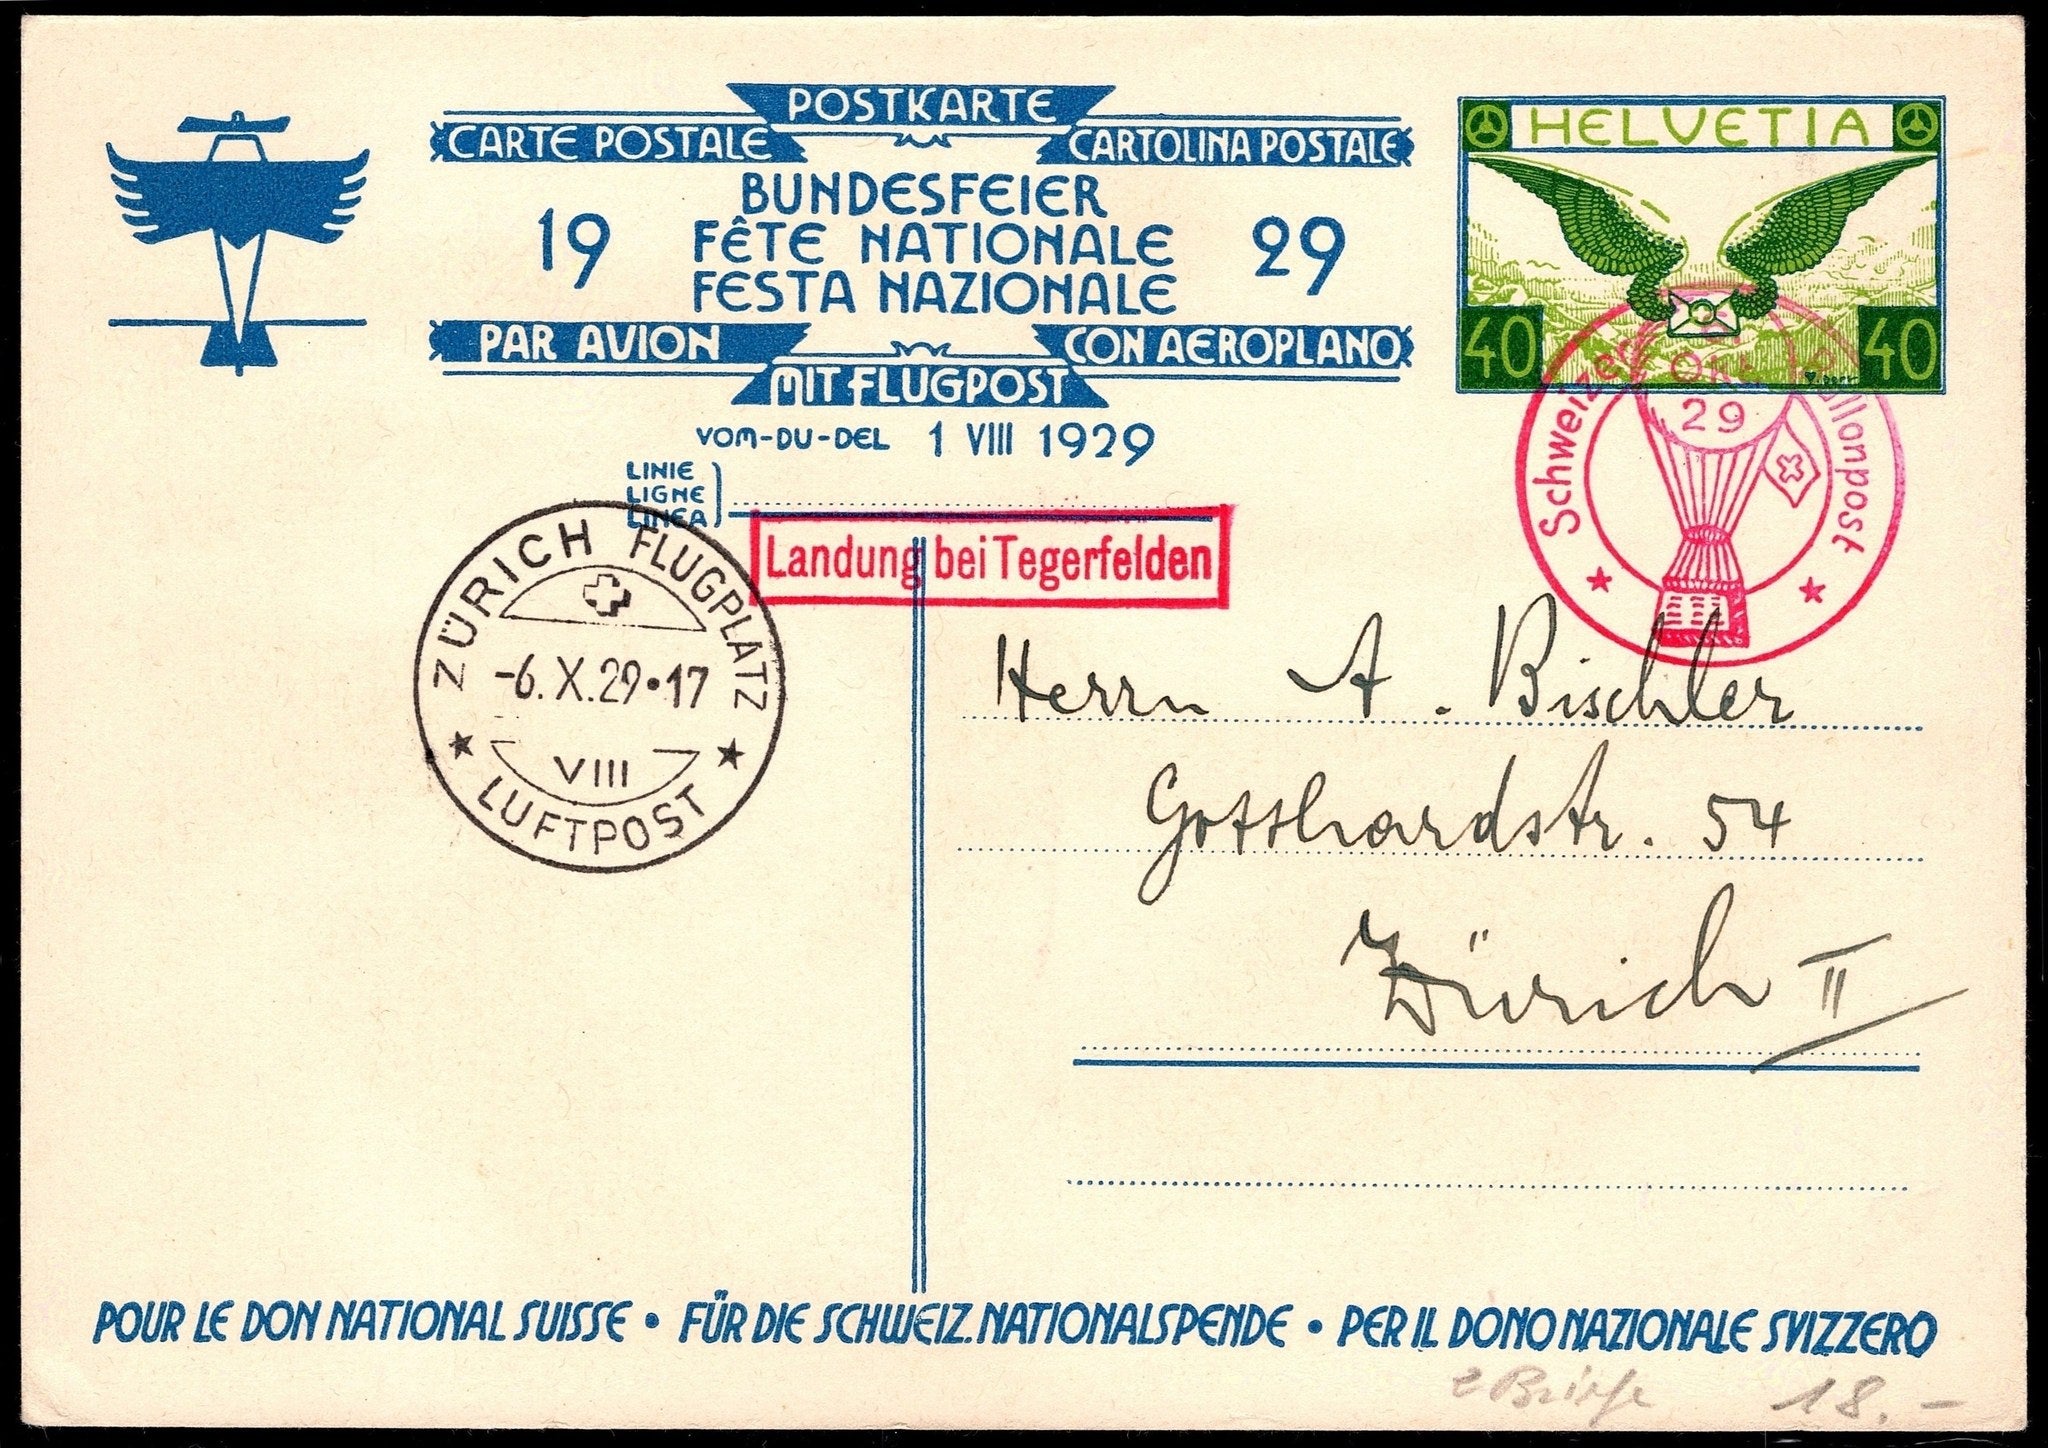 POSTKARTE
CARTE POSTALE CARTOLINA POSTALE
BUNDESFEIER
19 FÊTE NATIONALE 29
FESTA NAZIONALE
PAR AVION CON AEROPLANO
MIT FLUGPOST
VOM-DU-DEL 1 VIII 1929
LINIE
LIGNE
LINEA
HELVETIA
40 40
Schweizer Ballonpost
OKT.
29
Landung bei Tegerfelden
ZÜRICH FLUGPLATZ
-6.X.29•17
VIII
LUFTPOST
Herrn A. Bischler
Gotthardstr. 54
Zürich II
POUR LE DON NATIONAL SUISSE • FÜR DIE SCHWEIZ. NATIONALSPENDE • PER IL DONO NAZIONALE SVIZZERO
18.-